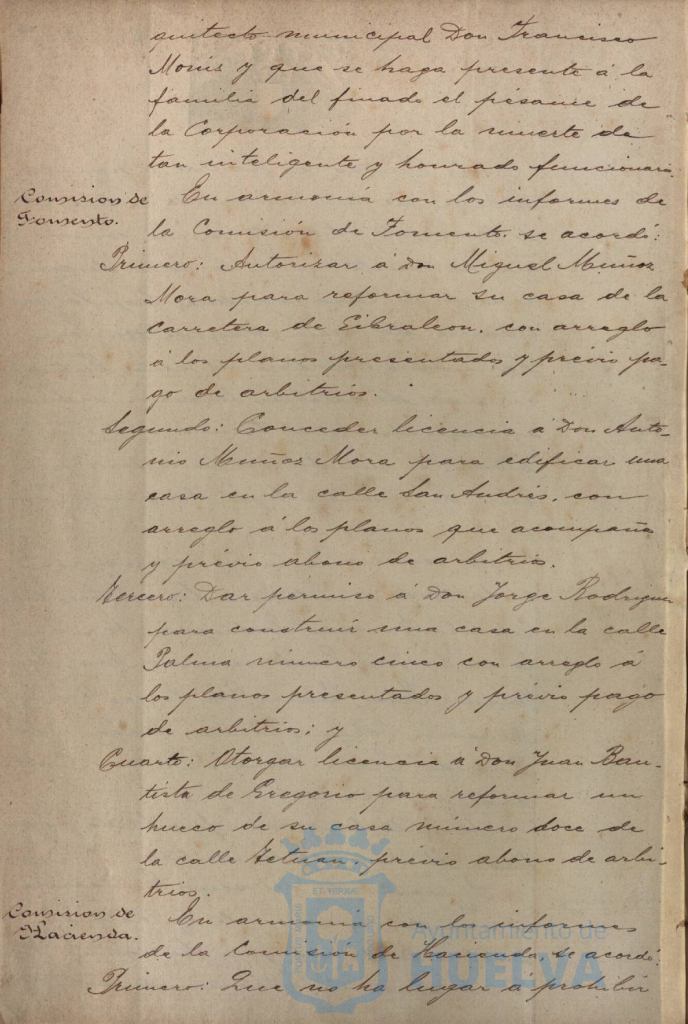 quitecto municipal Don Francisco
Monís y que se haga presente á la
familia del finado el pésame de
la Corporación por la muerte de
tan inteligente y honrado funcionario.
Comision de
Fomento.
En armonía con los informes de
la Comisión de Fomento. se acordó:
Primero: Autorizar á Don Miguel Muñoz
Mora para reformar su casa de la
carretera de Gibraleon, con arreglo
á los planos presentados y prévio pa-
go de arbitrios.
Segundo: Conceder licencia á Don Anto-
nio Muñoz Mora para edificar una
casa en la calle San Andrés, con
arreglo á los planos que acompaña
y prévio abono de arbitrios.
Tercero: Dar permiso á Don Jorge Rodriguez
para construir una casa en la calle
Palma número cinco con arreglo á
los planos presentados y prévio pago
de arbitrios; y
Cuarto: Otorgar licencia á Don Juan Bau-
tista de Gregorio para reformar un
hueco de su casa número doce de
la calle Tetuan, prévio abono de arbi-
trios.
Comision de
Hacienda.
En armonía con los informes
de la Comisión de Hacienda, se acordó:
Primero: Que no ha lugar á prohibir
Ayuntamiento de
HUELVA